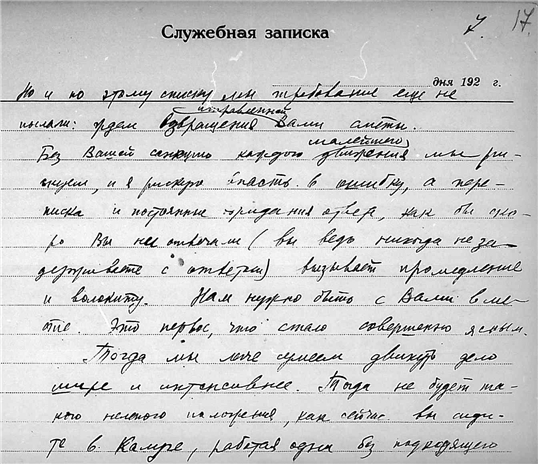 7. 17.
Служебная записка
дня 192 г.
Но и по этому списку мы требование еще не
исправленной
послали: ждем возвращения Вами сметы.
малейшего
Без Вашей санкции каждого движения мы рис-
куем, и я рискую впасть в ошибку, а пере-
писка и постоянные ожидания ответа, как бы ско-
ро Вы не отвечали (вы ведь никогда не за-
держиваете с ответами) вызывает промедление
и волокиту. Нам нужно быть с Вами вме-
сте. Это первое, что стало совершенно ясным.
Тогда мы легче сумеем двинуть дело
шире и интенсивнее. Тогда не будет та-
кого нелепого положения, как сейчас: вы сиди-
те в Калуге, работая один без подходящего